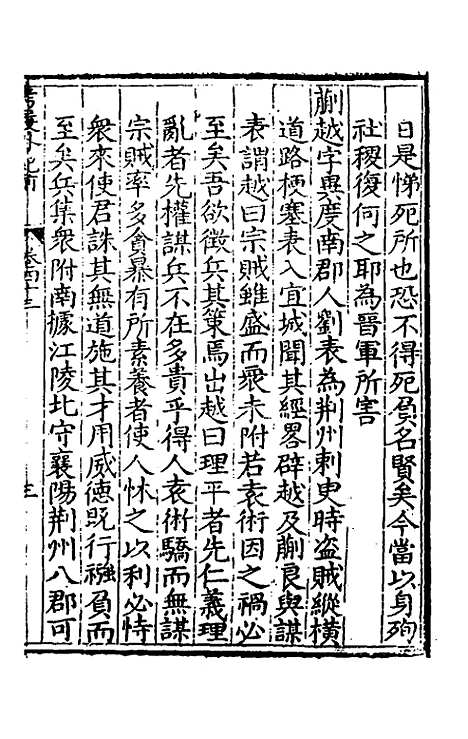 日是悌死所也恐不得死負名賢矣今當以身殉
社稷復何之耶為晉軍所害
蒯越字異度南郡人劉表為荆州刺史時盗賊縱橫
道路梗塞表入宜城聞其經畧辟越及蒯良與謀
表謂越曰宗賊雖盛而衆未附若袁術因之禍必
至矣吾欲徵兵其策焉出越曰理平者先仁義理
亂者先權謀兵不在多貴乎得人袁術驕而無謀
宗賊率多貪暴有所素養者使人怵之以利必恃
衆來使君誅其無道施其才用威德旣行襁負而
至矣兵集衆附南據江陵北守襄陽荆州八郡可